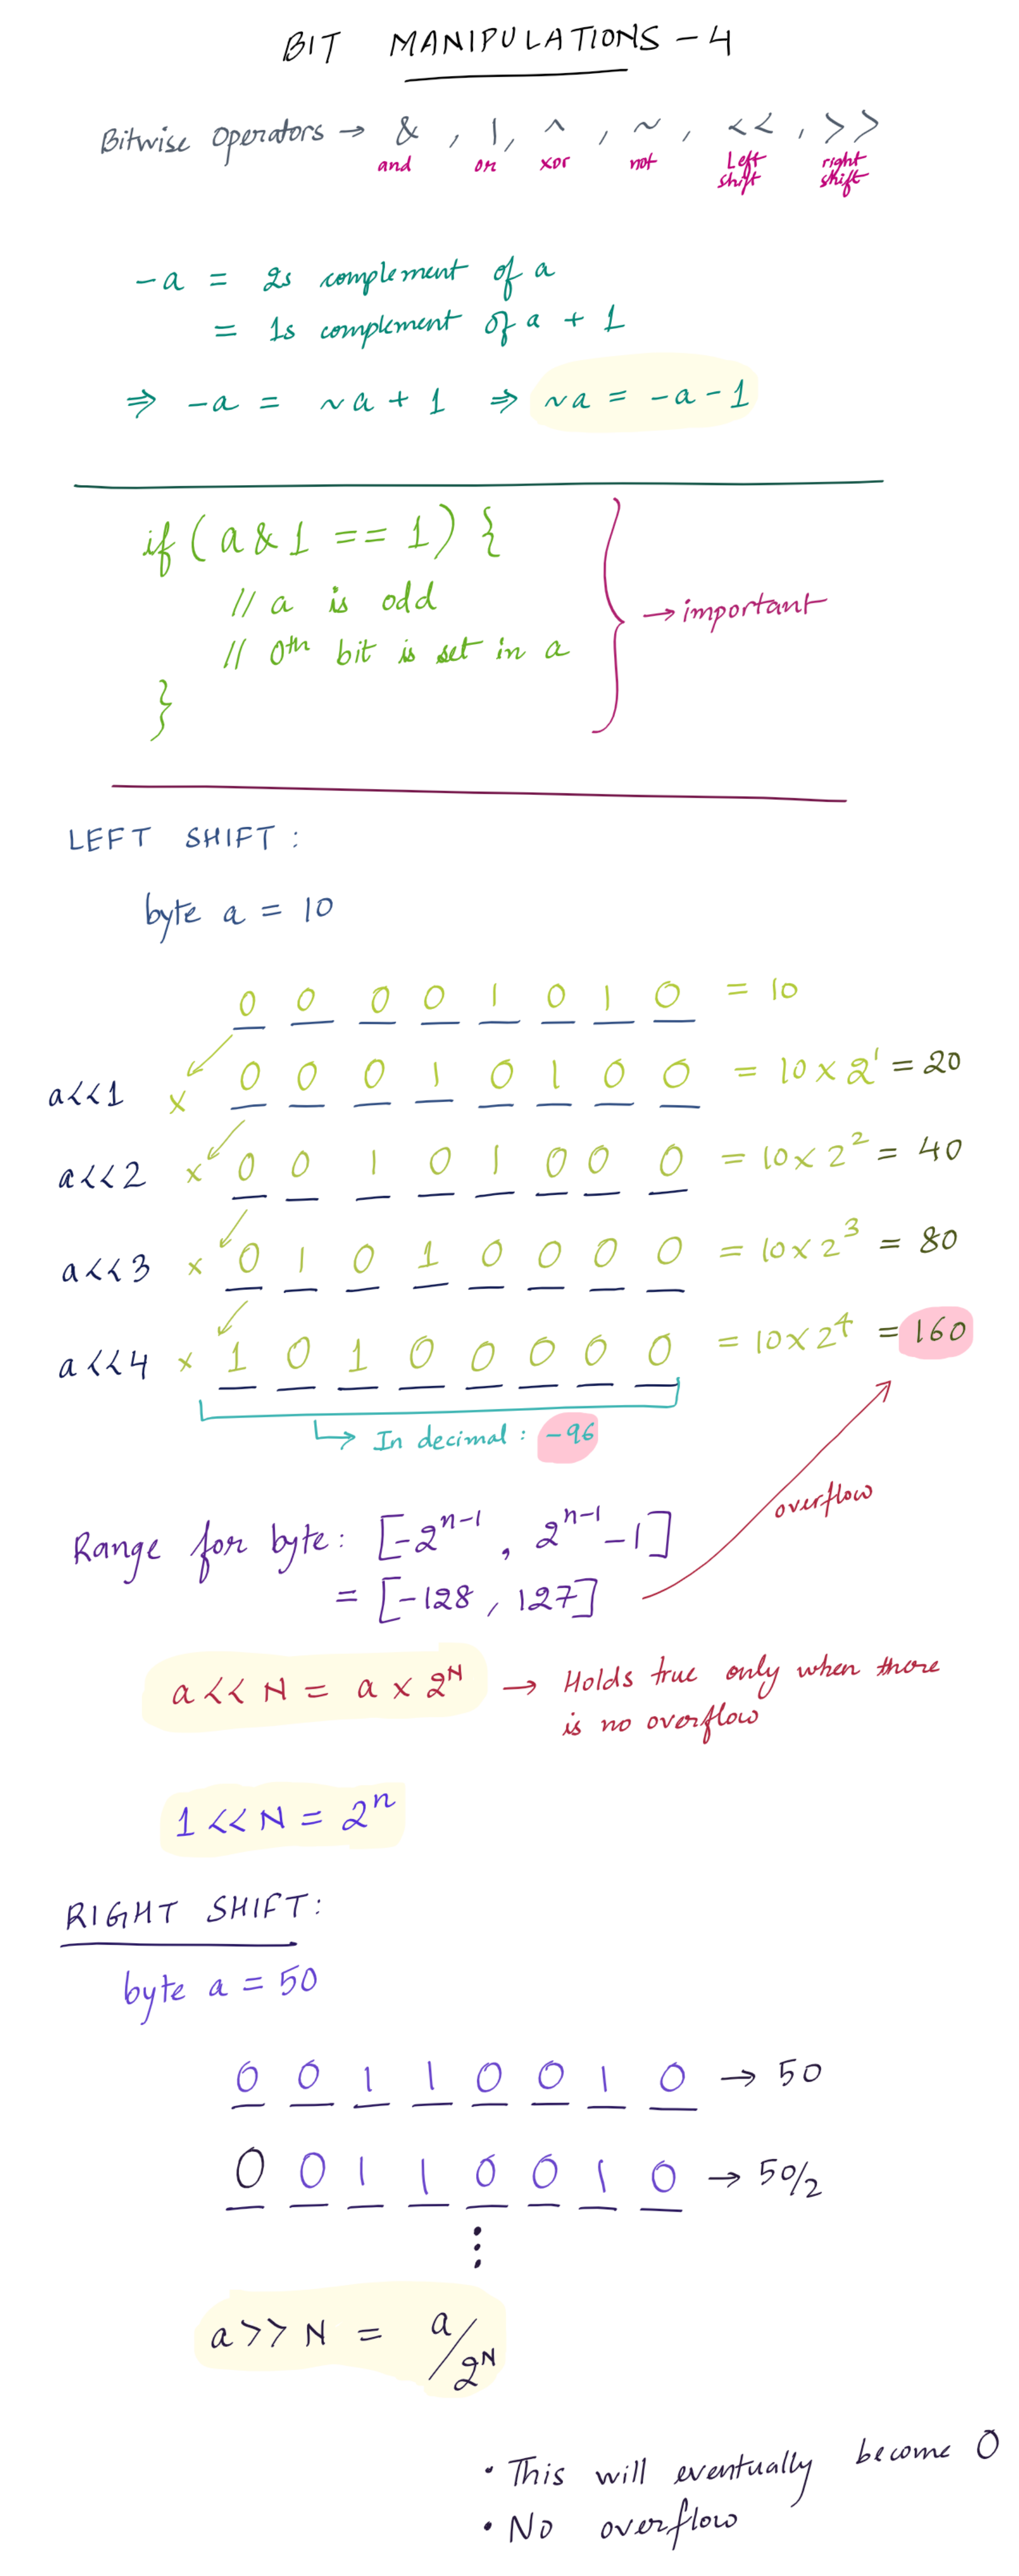 BIT MANIPULATIONS - 4
Bitwise Operators → & , |, ^ , ~ , << , >>
and or xor not Left shift right shift
-a = 2s complement of a
= 1s complement of a + 1
⇒ -a = ~a + 1 ⇒ ~a = -a - 1
if (a & 1 == 1) {
// a is odd
// 0th bit is set in a
}
→ important
LEFT SHIFT :
byte a = 10
0 0 0 0 1 0 1 0 = 10
a<<1 x 0 0 0 1 0 1 0 0 = 10 x 2¹ = 20
a<<2 x 0 0 1 0 1 0 0 0 = 10 x 2² = 40
a<<3 x 0 1 0 1 0 0 0 0 = 10 x 2³ = 80
a<<4 x 1 0 1 0 0 0 0 0 = 10 x 2⁴ = 160
In decimal : -96
overflow
Range for byte : [-2ⁿ⁻¹ , 2ⁿ⁻¹ - 1]
= [-128 , 127]
a << N = a x 2ᴺ → Holds true only when there
is no overflow
1 << N = 2ⁿ
RIGHT SHIFT :
byte a = 50
0 0 1 1 0 0 1 0 → 50
0 0 1 1 0 0 1 0 → 50/2
⋮
a >> N = a/2ᴺ
• This will eventually become 0
• No overflow